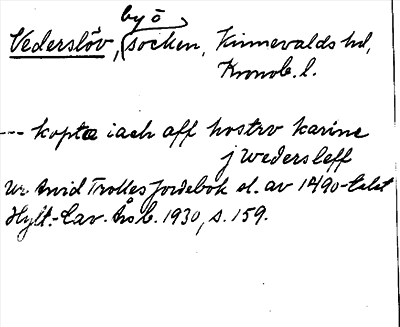 by o
Vederslöv, (socken, Kinnevalds hd,
Kronob. l.
--- kopte iach aff hostrv karine
j wedersleff
ur Arvid Trolles jordebok sl. av 1490-talet
Hylt.-Cav. Årsb. 1930, s. 159.